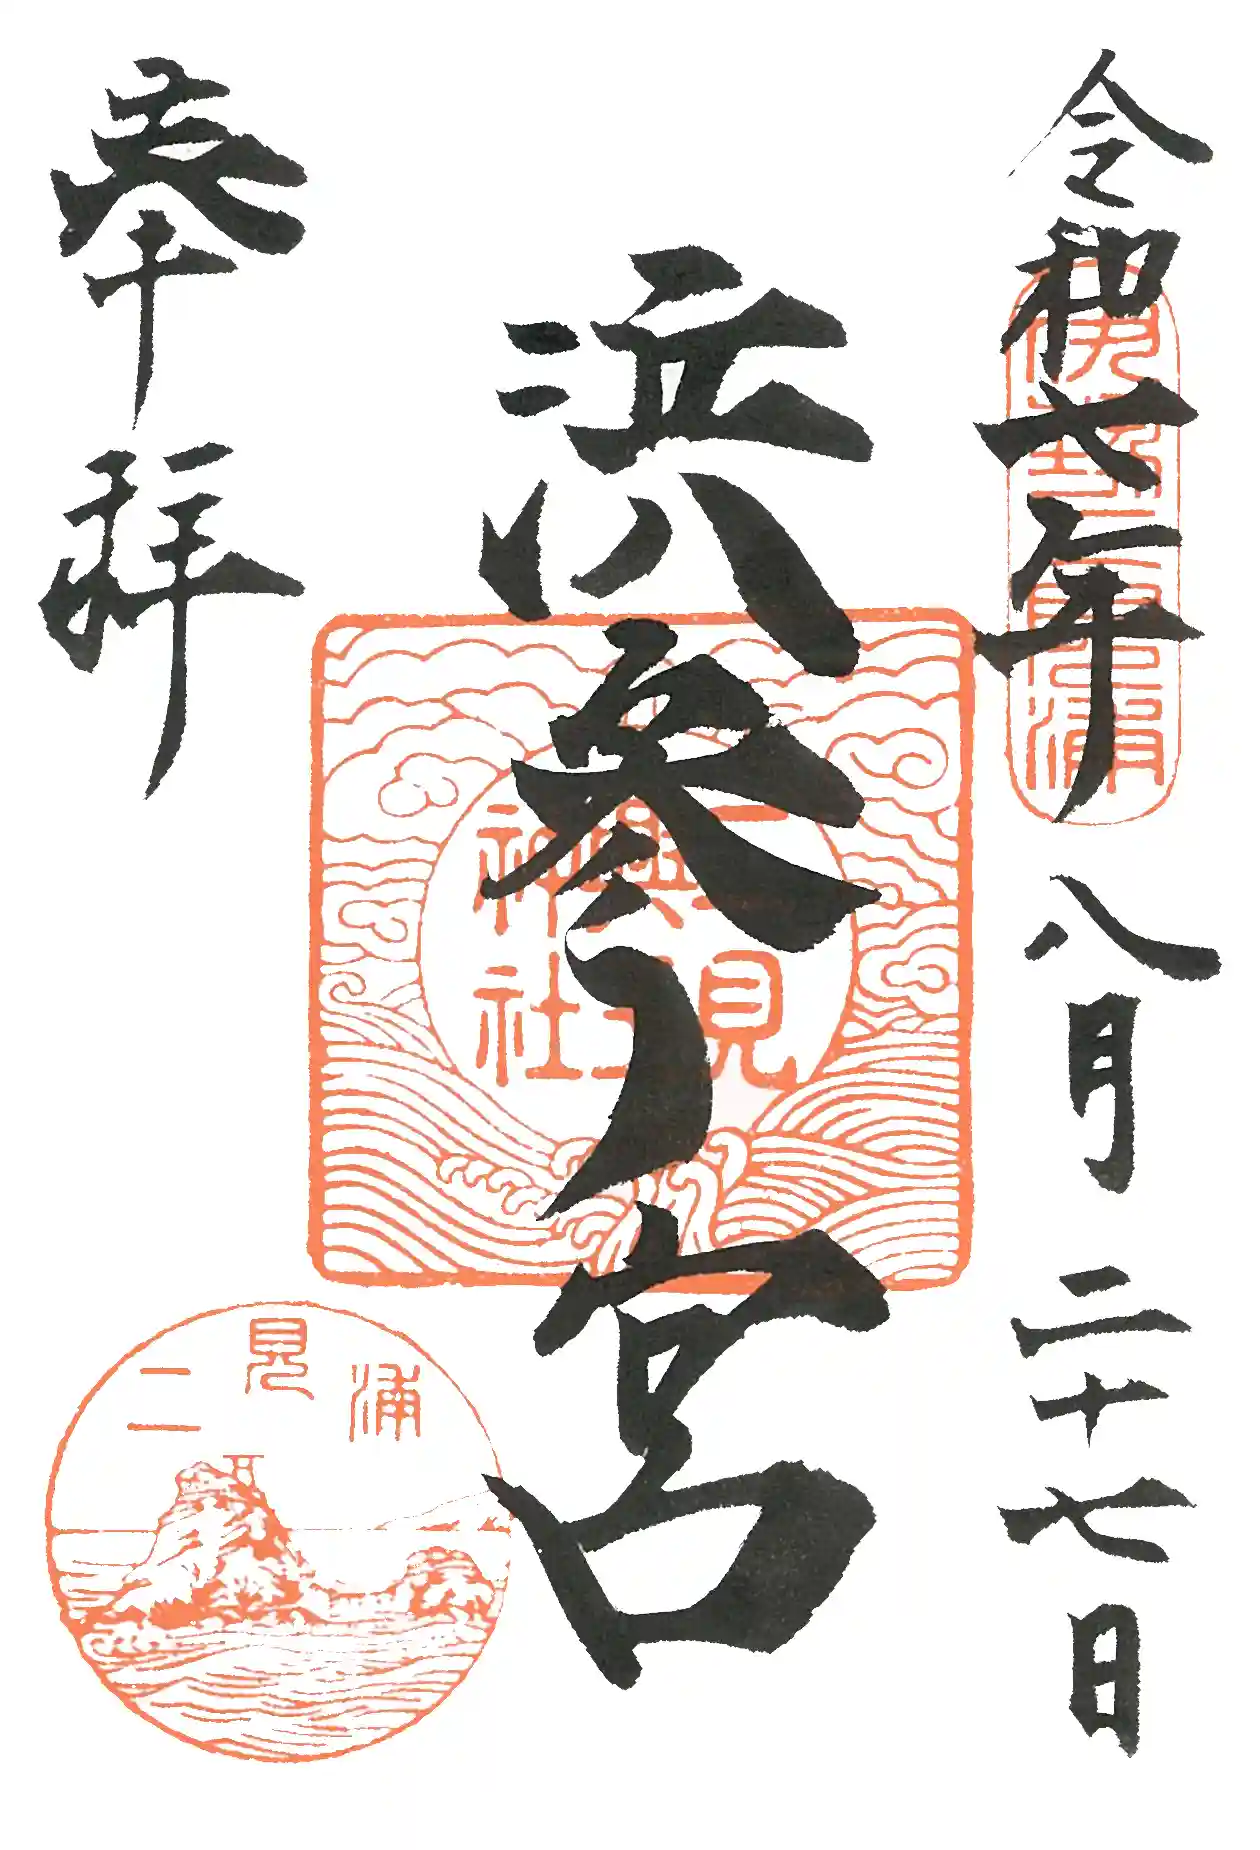 令和七年 八月 二十七日
伊勢二見浦
浜参宮
二見
興玉
神社
奉拝
二見浦